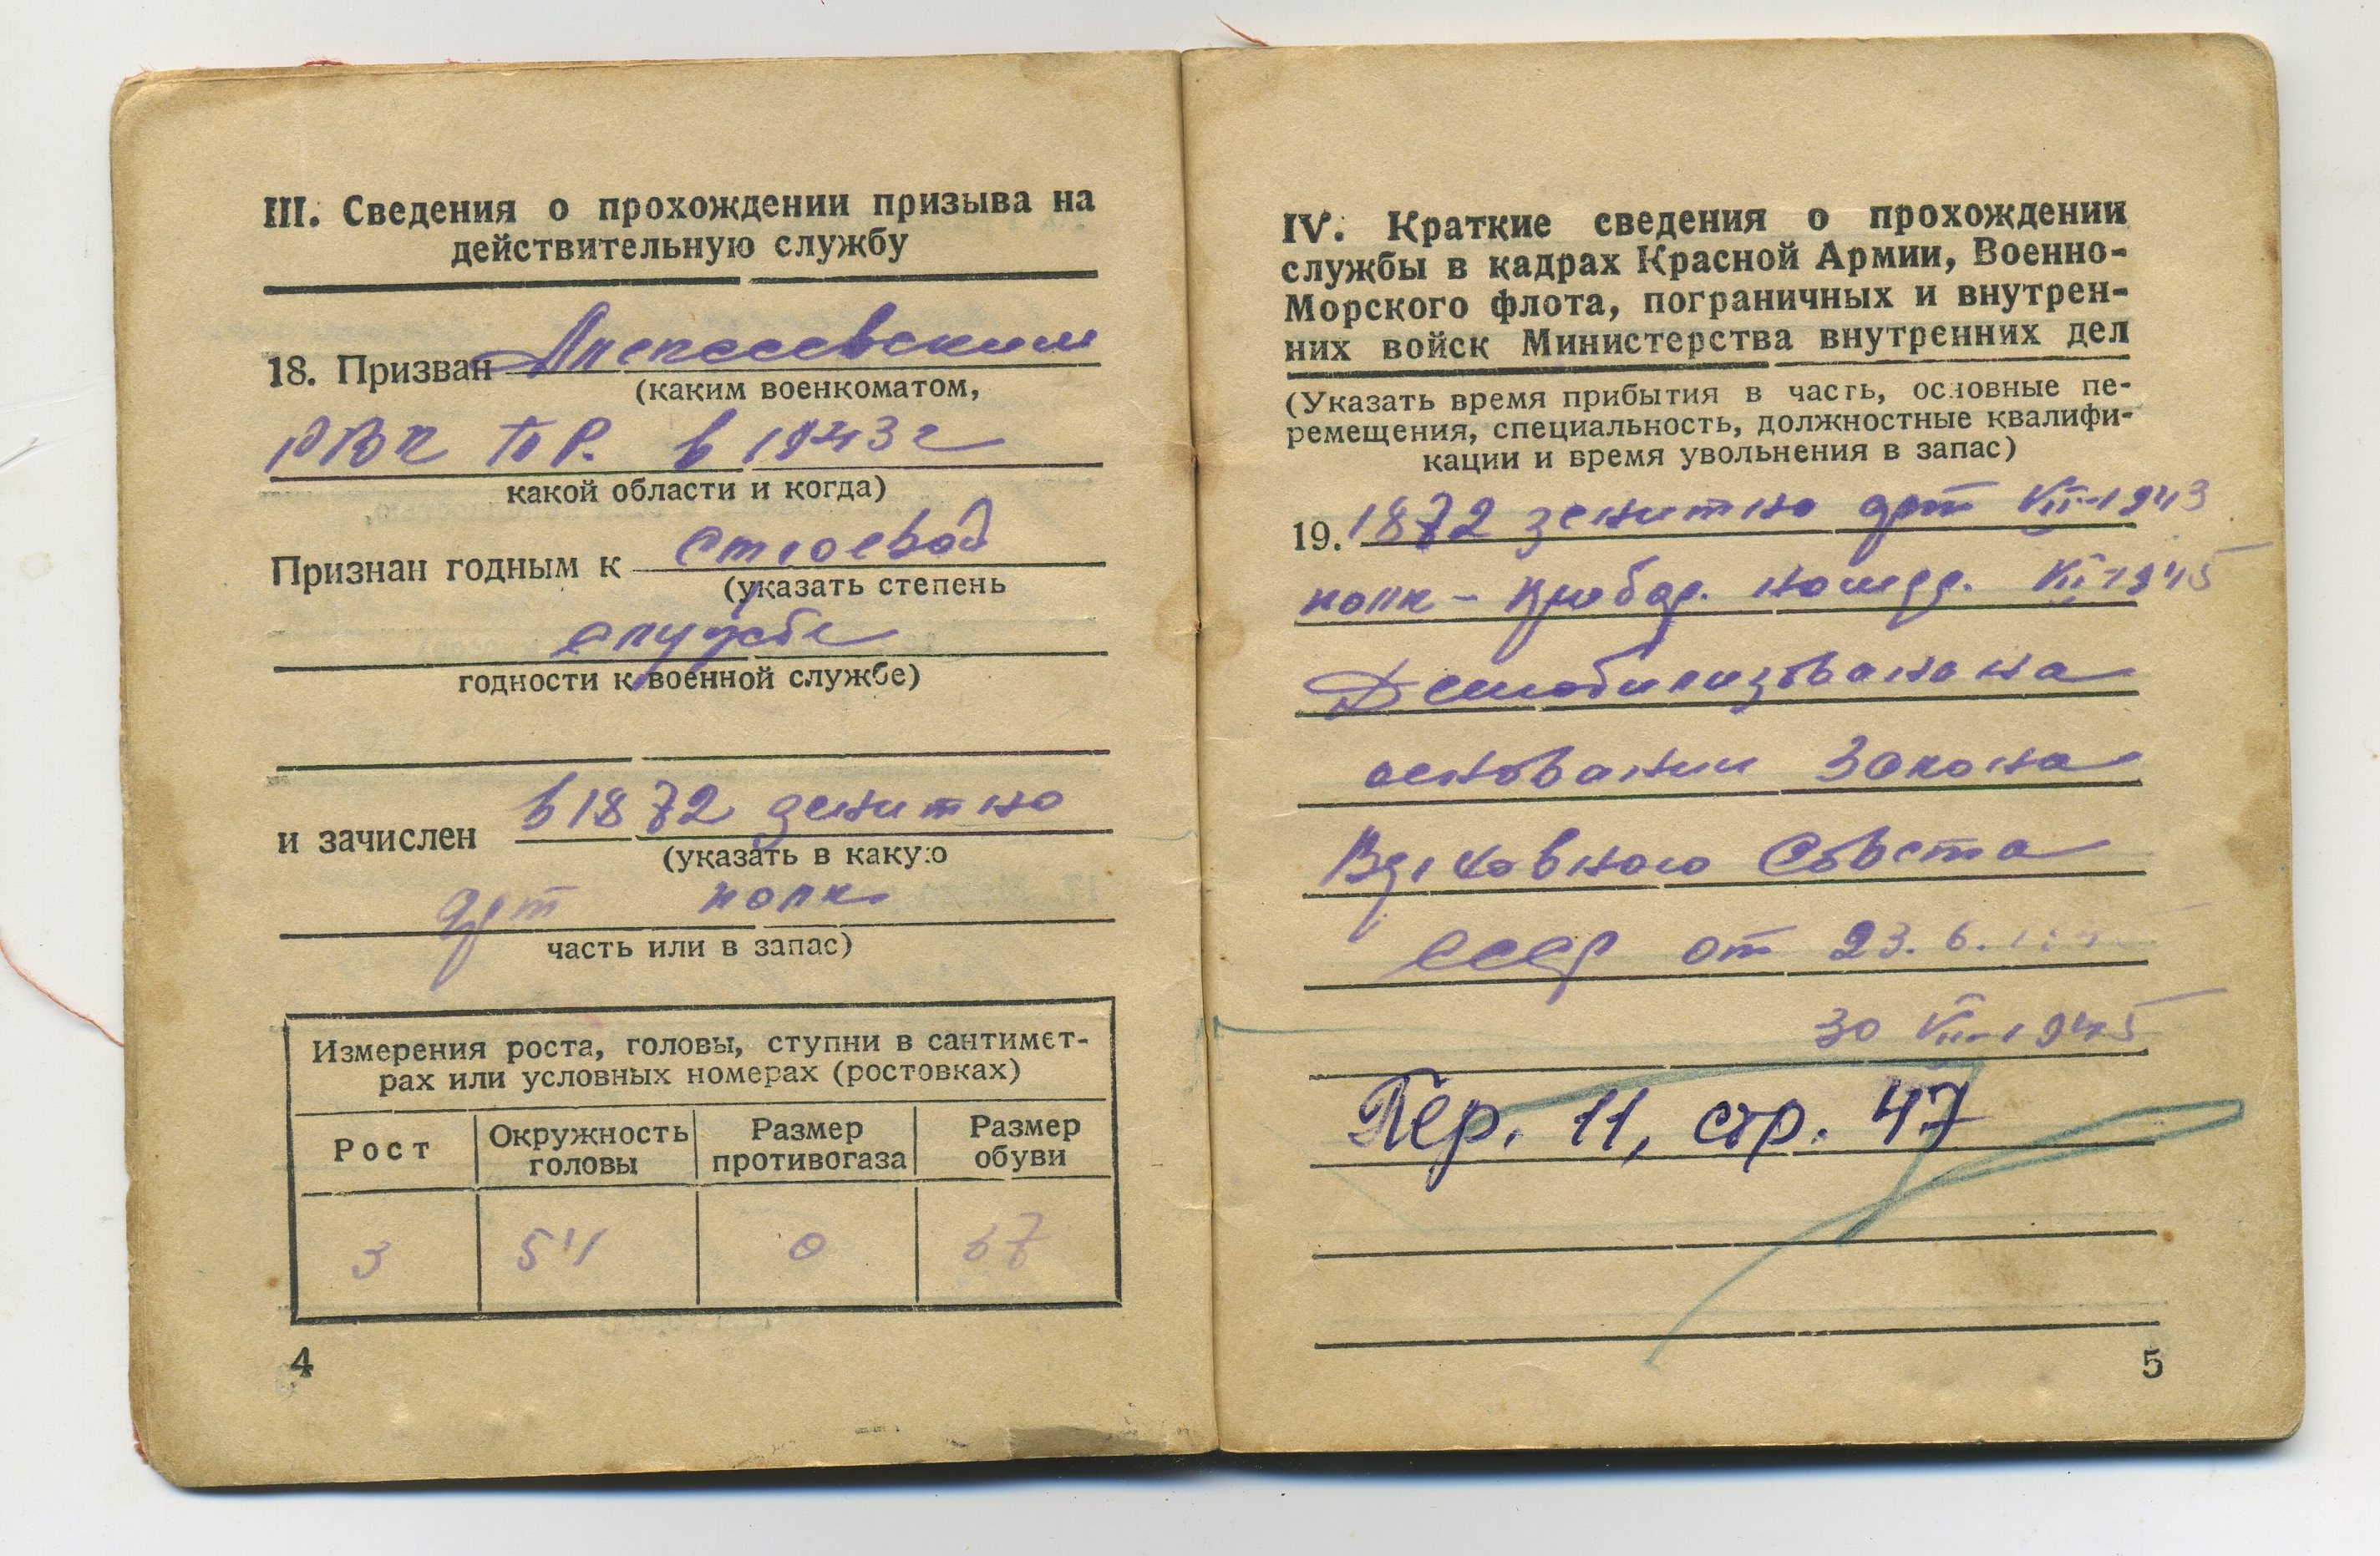 III. Сведения о прохождении призыва на
действительную службу
18. Призван Алексеевским
(каким военкоматом,
РВК в 1943 г
какой области и когда)
Признан годным к строевой
(указать степень
службе
годности к военной службе)
и зачислен в 1872 зенитно
(указать в какую
арт полк
часть или в запас)
Измерения роста, головы, ступни в сантимет-
рах или условных номерах (ростовках)
Рост Окружность головы Размер противогаза Размер обуви
3 54 0 37
4
IV. Краткие сведения о прохождении
службы в кадрах Красной Армии, Военно-
Морского флота, пограничных и внутрен-
них войск Министерства внутренних дел
(Указать время прибытия в часть, основные пе-
ремещения, специальность, должностные квалифи-
кации и время увольнения в запас)
19. 1872 зенитно арт 1943
полк - 1945
Демобилизована на
основании Закона
Верховного Совета
СССР от 23.6.
30 1945
Пер. 11, стр. 47
5